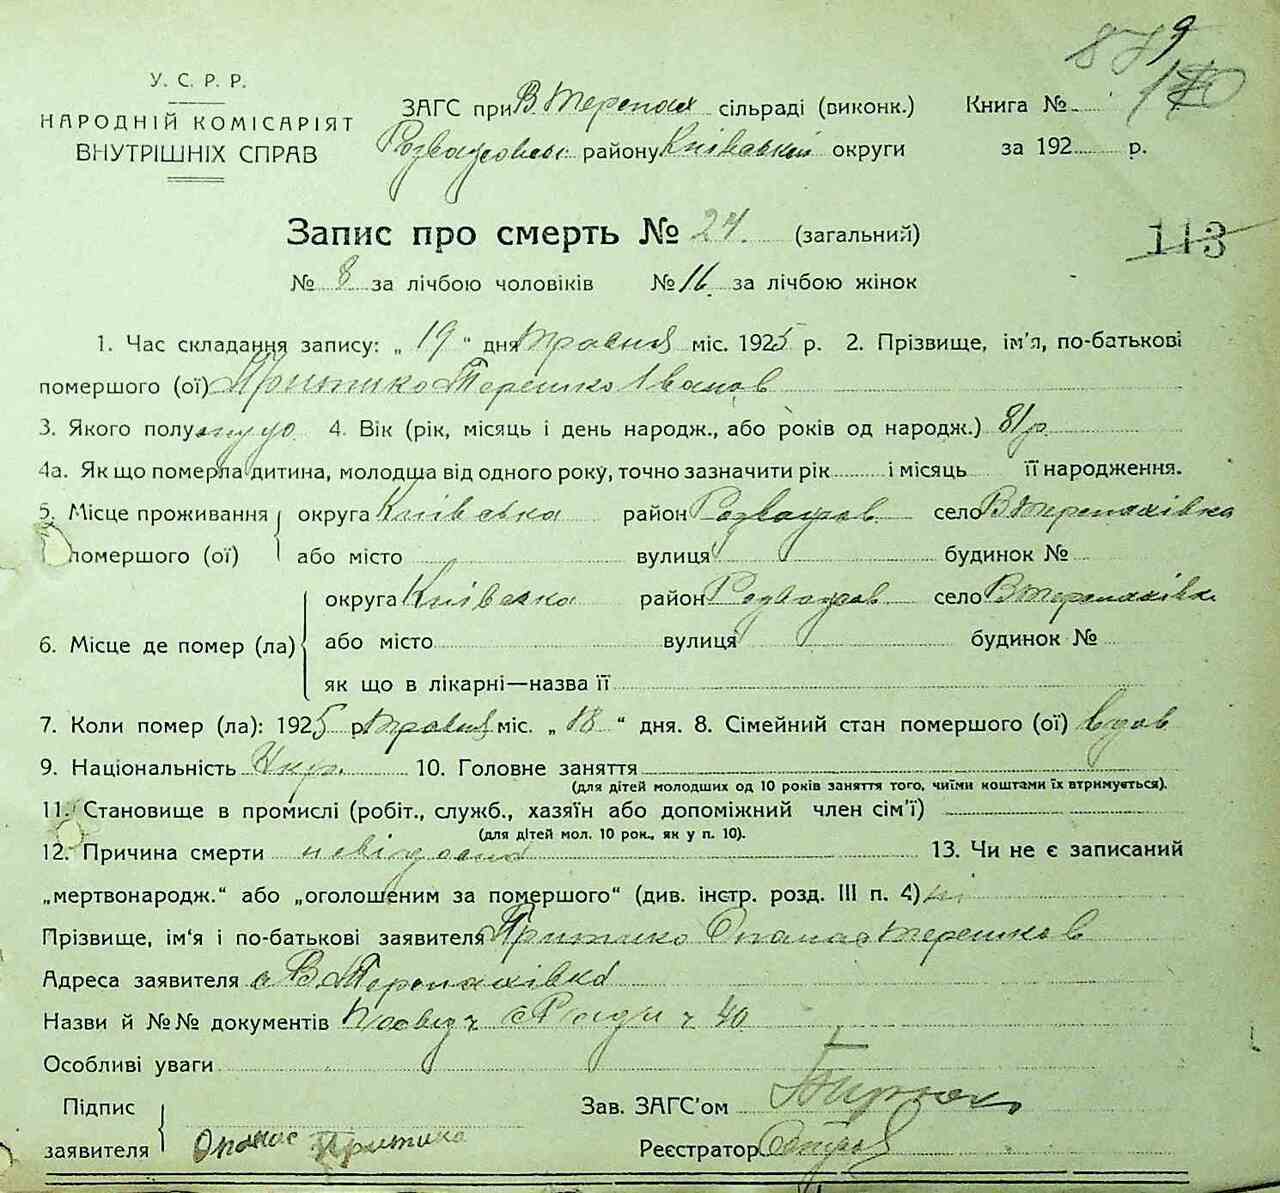 879
У. С. Р. Р.
НАРОДНІЙ КОМІСАРІЯТ
ВНУТРІШНІХ СПРАВ
ЗАГС при В Терепах сільраді (виконк.) Книга №
Розважовськ району Київській округи за 192 р.
113
Запис про смерть № 24. (загальний)
№ 8 за лічбою чоловіків № 16 за лічбою жінок
1. Час складання запису: „ 19 “ дня травня міс. 1925 р. 2. Прізвище, ім'я, по-батькові
помершого (ої) Притико Терешко Іванов
3. Якого полу 4. Вік (рік, місяць і день народж., або років од народж.) 81 р
4а. Як що померла дитина, молодша від одного року, точно зазначити рік і місяць її народження.
5. Місце проживання помершого (ої) округа Київська район Розважов село В Терепахівка
або місто вулиця будинок №
6. Місце де помер (ла) округа Київська район Розважов село В Терепахівка
або місто вулиця будинок №
як що в лікарні—назва її
7. Коли помер (ла): 1925 р травня міс. „ 18 “ дня. 8. Сімейний стан помершого (ої) вдов
9. Національність Укр. 10. Головне заняття
(для дітей молодших од 10 років заняття того, чиїми коштами їх втримується).
11. Становище в промислі (робіт., служб., хазяїн або допоміжний член сім'ї)
(для дітей мол. 10 рок., як у п. 10).
12. Причина смерти невідома 13. Чи не є записаний
„мертвонародж.“ або „оголошеним за помершого“ (див. інстр. розд. III п. 4) ні
Прізвище, ім'я і по-батькові заявителя Притико Опанас Терешков
Адреса заявителя с В. Терепахівка
Назви й №№ документів Посвід ч с Ради ч 40
Особливі уваги
Підпис заявителя Опанас Притика
Зав. ЗАГС'ом
Реєстратор